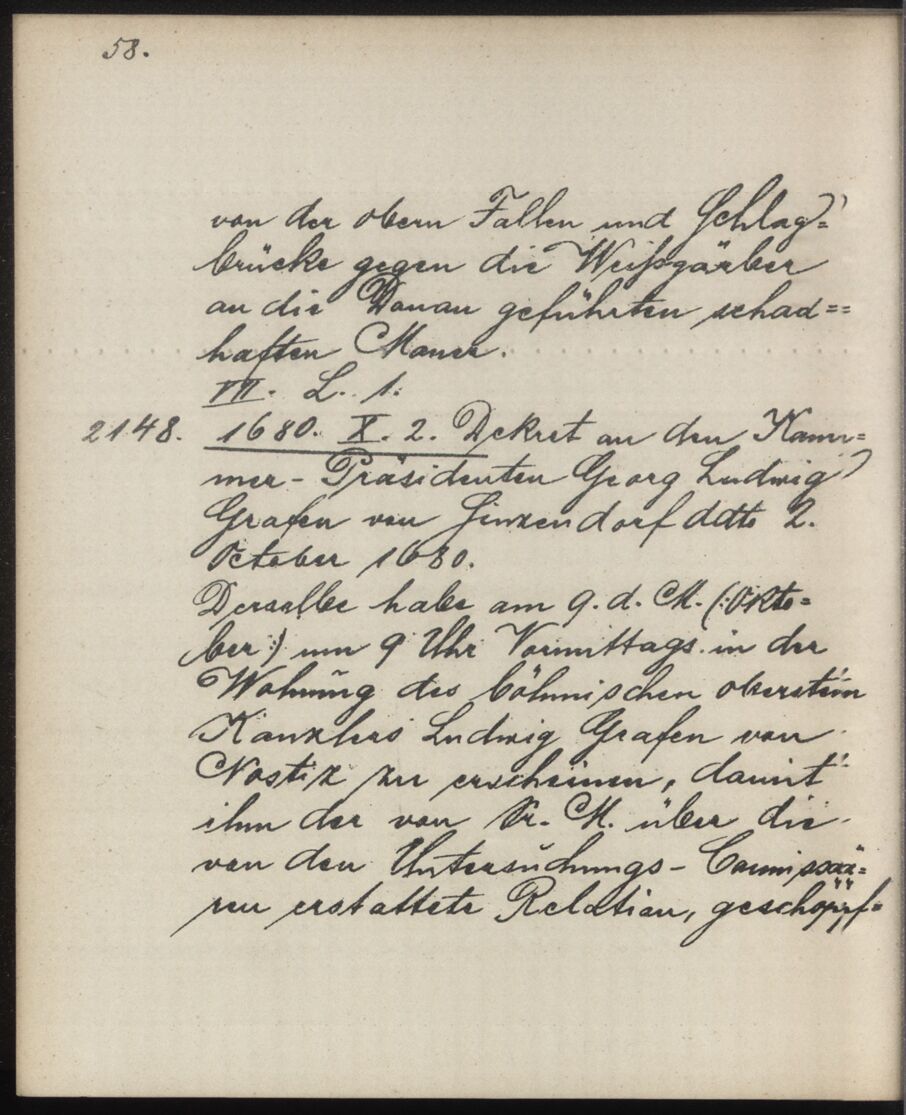 58.
von der obern Fallen und Schlag=
brücke gegen die Weißgärber
an die Donau geführten schad=
haften Mauer.
VII. L. 1.
2148. 1680. X. 2. Dekret an den Kam=
mer-Präsidenten Georg Ludwig
Grafen von Sinzendorf ddto 2.
October 1680.
Derselbe habe am 9. d. M. (:Okto=
ber:) um 9 Uhr Vormittags in der
Wohnung des böhmischen obersten
Kanzlers Ludwig Grafen von
Nostiz zu erscheinen, damit
ihm der von Sr. M. über die
von den Untersuchungs-Commissä=
ren erstattete Relation, geschöpf=